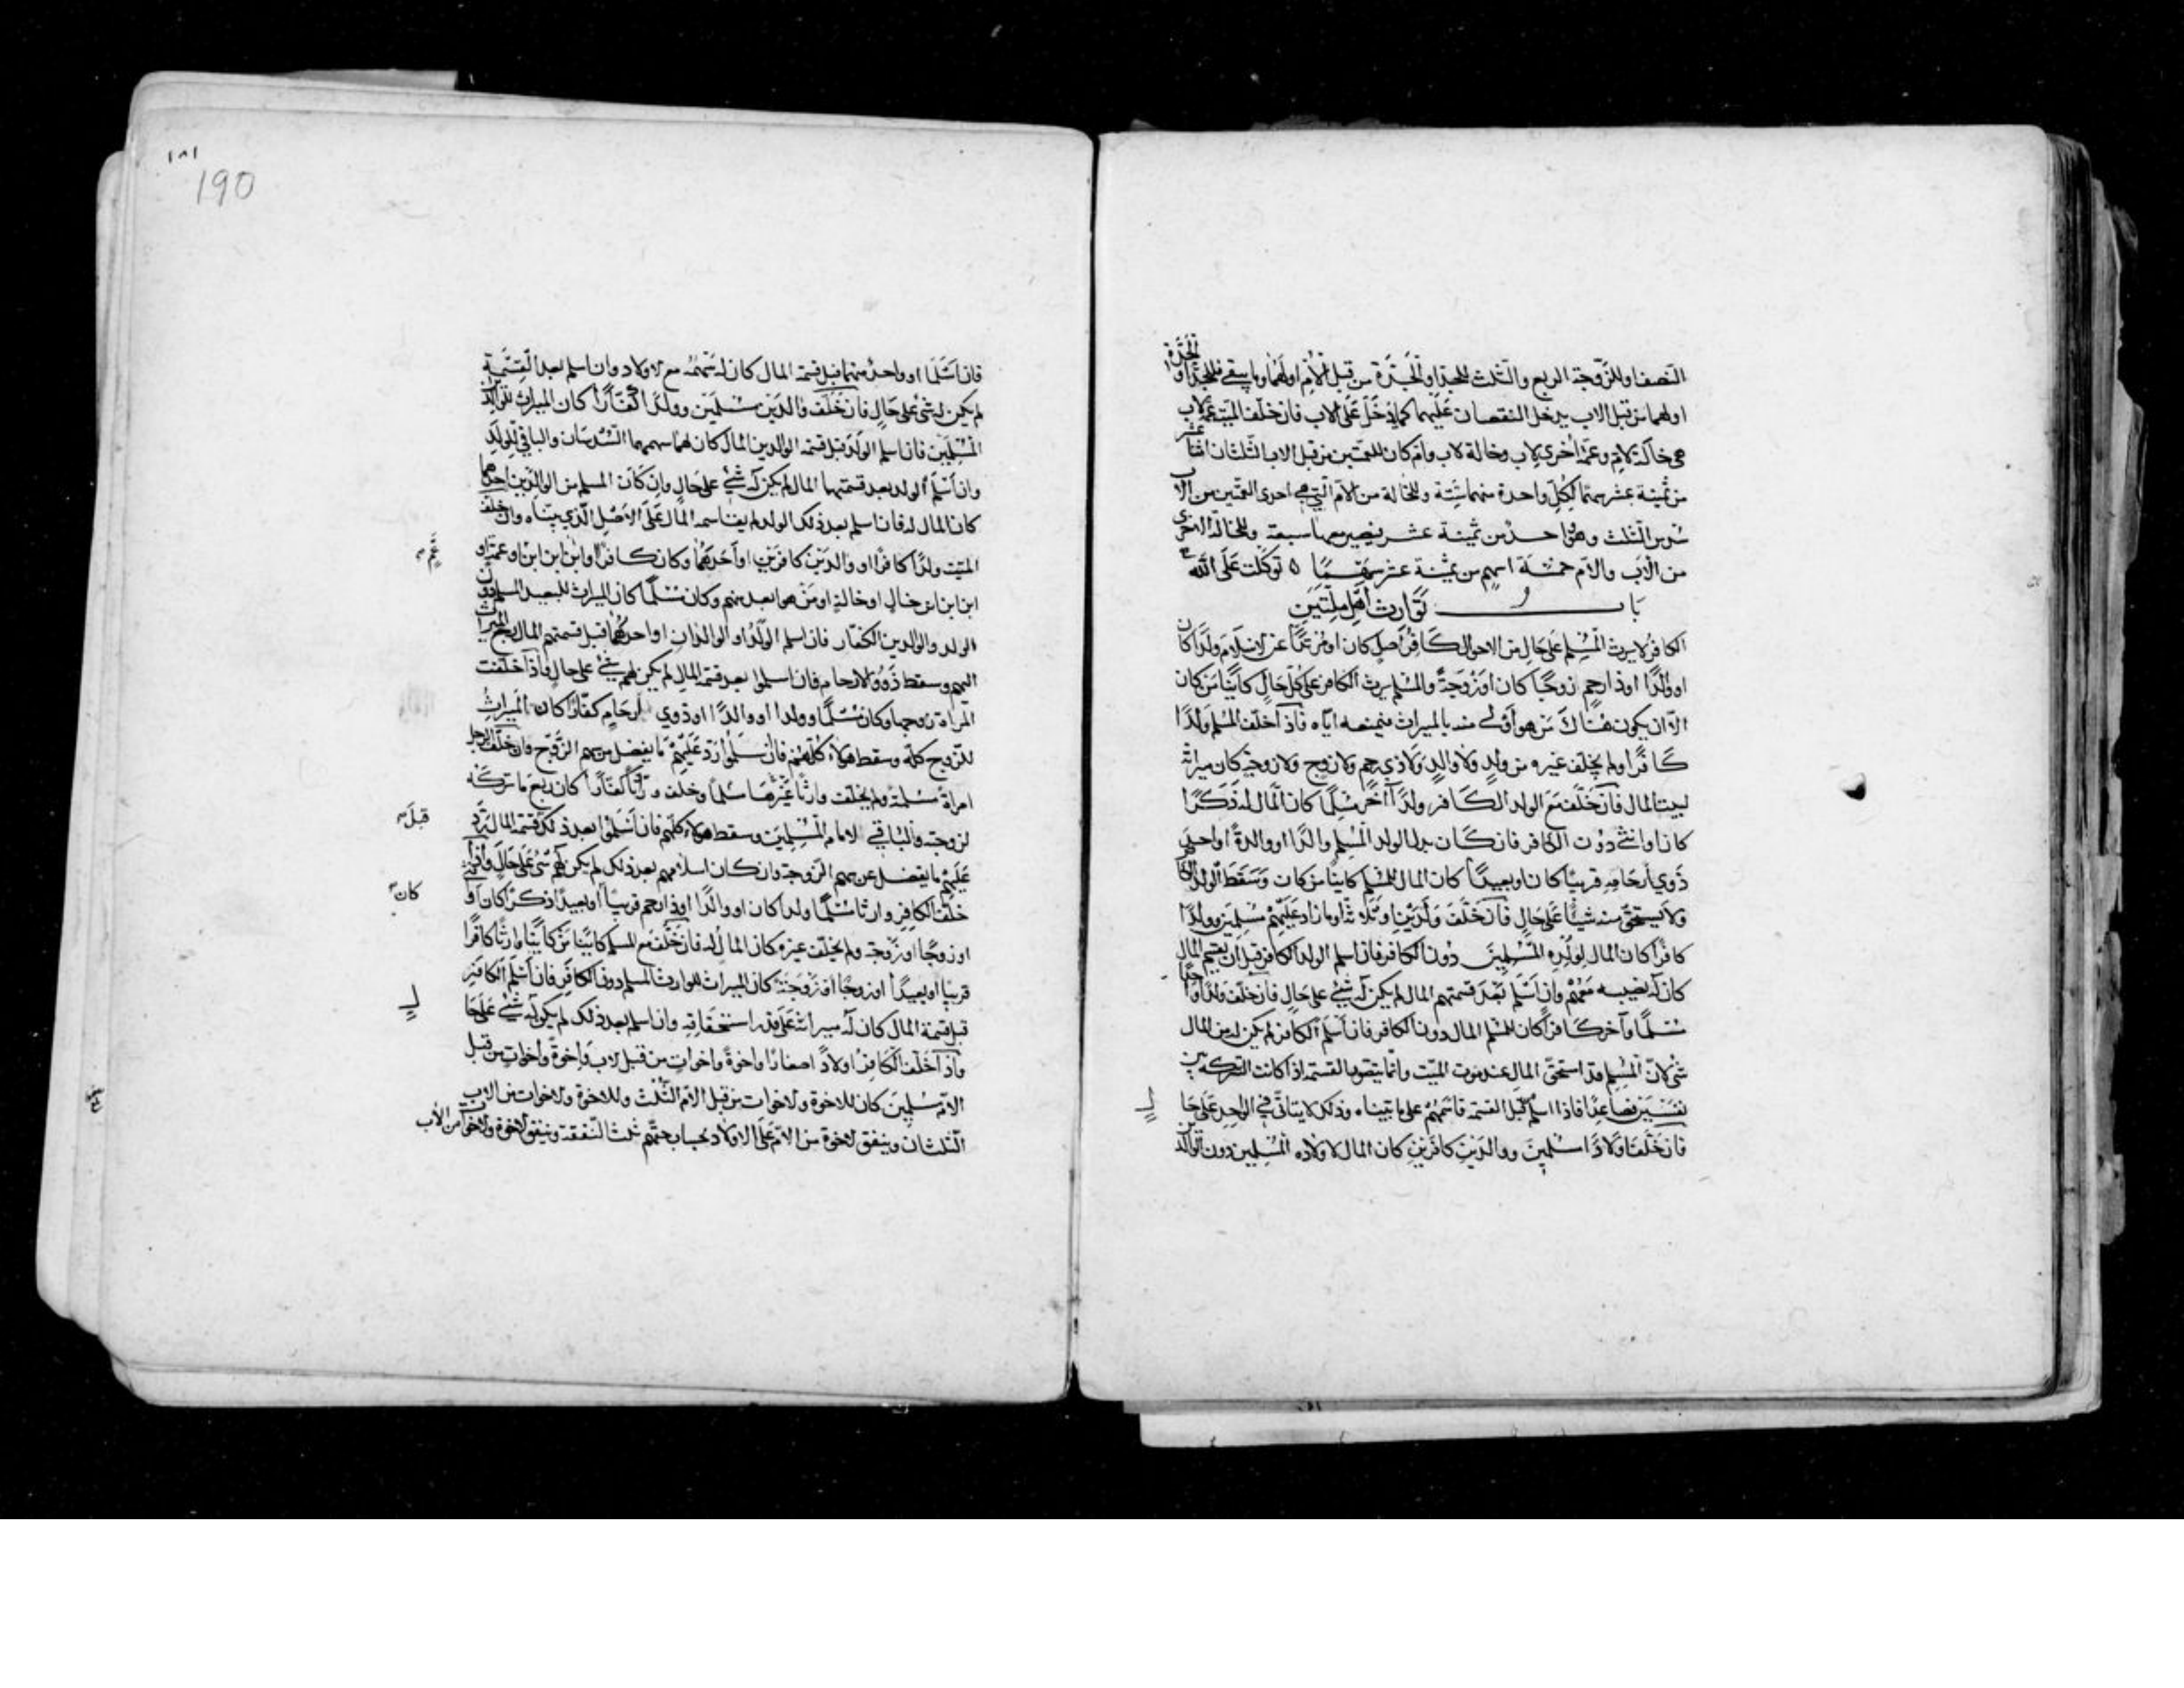 النصف او للزوجة الربع والثلث للجد او الجدة من قبل الأم او لهما وما يبقى فللجد او الجدة
او لهما من قبل الاب يدخل النقصان عليهما كما يدخل على الاب فان خلف الميت عمة لاب
هي خالة لام وعمة اخرى لاب وخالة لاب وام كان للعمتين من قبل الاب الثلثان اثنا عشر
من ثمنية عشر سهما لكل واحدة منهما ستة وللخالة من الأم التي هي احدى العمتين من الاب
سدس الثلث وهو واحد من ثمنية عشر فيصير معها سبعة وللخالة الاخرى
من الأب والأم خمسة اسهم من ثمنية عشر سهما ٥ توكلت على الله
باب توارث أهل ملتين
الكافر لا يرث المسلم على حال من الاحوال كافر أصل كان او مرتدا عن الاسلام ولدا كان
او والدا او ذا رحم زوجا كان او زوجة والمسلم يرث الكافر على كل حال كائنا من كان
الا ان يكون هناك من هو أولى منه بالميراث فيمنعه اياه فاذا خلف المسلم ولدا
كافرا ولم يخلف غيره من ولد ولا والد ولا ذي رحم ولا زوج ولا زوجة كان ميراثه
لبيت المال فان خلف مع الولد الكافر ولدا آخر مسلما كان المال له ذكرا
كان او انثى دون الكافر فان كان بدل الولد المسلم والدا او والدة او احد من
ذوي أرحامه قريبا كان او بعيدا كان المال للمسلم كائنا من كان وسقط الولد الكافر
ولا يستحق منه شيئا على حال فان خلف ولدين او ثلاثة او ما زاد عليهم مسلمين وولدا
كافرا كان المال لولده المسلمين دون الكافر فان اسلم الولد الكافر قبل أن يقسم المال
كان له نصيبه معهم وان اسلم بعد قسمتهم المال لم يكن له شيء على حال فان خلف ولدا واحدا
مسلما وآخر كافرا كان للمسلم المال دون الكافر فان أسلم الكافر لم يكن له من المال
شيء لان المسلم قد استحق المال عند موت الميت وانما يتصور القسمة اذا كانت التركة بين
نفسين فصاعدا فاذا اسلم قبل القسمة قاسمهم على ما بيناه وذلك لا يتأتى في الواحد على حال
فان خلف اولادا مسلمين ووالدين كافرين كان المال لاولاده المسلمين دون الوالدين
١٨١
190
فان اسلما او واحد منهما قبل قسمة المال كان له سهمه مع الاولاد وان اسلم بعد القسمة
لم يكن له شيء على حال فان خلف والدين مسلمين وولدا كفارا كان الميراث للوالدين
المسلمين فان اسلم الولد قبل قسمة الوالدين المال كان لهما سهمهما السدسان والباقي للولد
وان اسلم الولد بعد قسمتهما المال لم يكن له شيء على حال وإن كان المسلم من الوالدين احدهما
كان المال له فان اسلم بعد ذلك الولد لم يقاسمه المال على الأصل الذي بيناه وان خلف
الميت ولدا كافرا او والدين كافرين او احدهما وكان كافرا وابن ابن ابن او عمة او
عم
ابن ابن ابن خال او خالة او من هو ابعد منهم وكان مسلما كان الميراث للبعيد المسلم دون
الولد والوالدين الكفار فان اسلم الولد او الوالدان او احدهما قبل قسمتهم المال رجع الميراث
اليهم وسقط ذوو الارحام فان اسلموا بعد قسمة المال لم يكن لهم شيء على حال واذا خلفت
المرأة زوجها وكان مسلما وولدا او والدا او ذوي أرحام كفارا كان الميراث
للزوج كله وسقط هؤلاء كلهم فان اسلموا رد عليهم ما يفضل من سهم الزوج وان خلف الرجل
امراة مسلمة ولم يخلف وارثا غيرها مسلما وخلف وراثا كفارا كان ربع ما تركه
لزوجته والباقي لامام المسلمين وسقط هؤلاء كلهم فان أسلموا بعد ذلك قسمة المال يرد
قبل
عليهم ما يفضل عن سهم الزوجة وان كان اسلامهم بعد ذلك لم يكن لهم شيء على حال واذا
خلف الكافر وارثا مسلما ولدا كان او والدا او ذا رحم قريبا او بعيدا ذكرا كان او انثى
كان
او زوجا او زوجة ولم يخلف غيره كان المال له فان خلف مع المسلم كائنا من كان وارثا كافرا
قريبا او بعيدا او زوجا او زوجة كان الميراث للوارث المسلم دون الكافر فان اسلم الكافر
قبل قسمة المال كان له ميراثه على قدر استحقاقه وان اسلم بعد ذلك لم يكن له شيء على حال
واذا خلف الكافر اولادا صغارا واخوة واخوات من قبل الاب وإخوة وأخوات من قبل
الام مسلمين كان للاخوة والاخوات من قبل الام الثلث وللاخوة والاخوات من الاب
الثلثان وينفق الاخوة من الأم على الاولاد بحساب حقهم ثلث النفقة وينفق الاخوة والاخوات من الأب